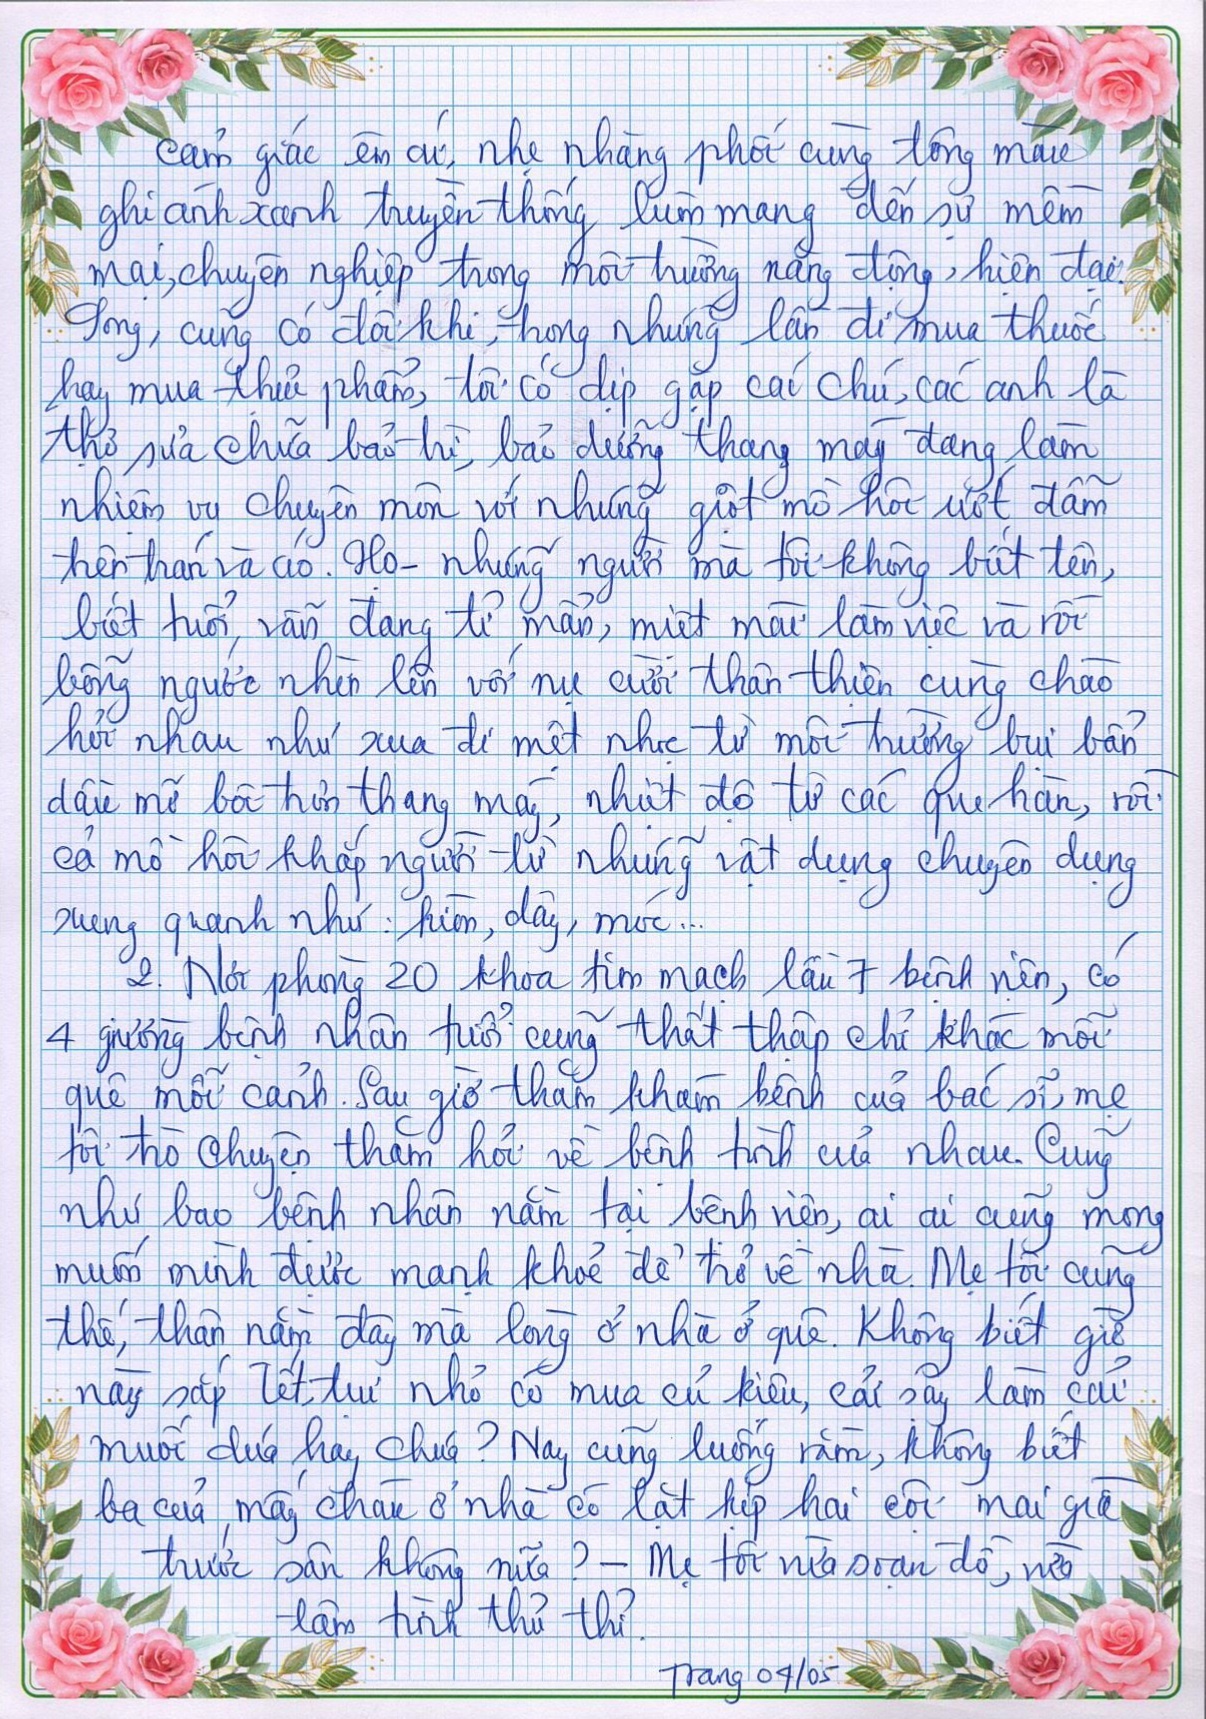 cảm giác êm ái, nhẹ nhàng phối cùng tông màu
ghi ánh xanh truyền thống luôn mang đến sự mềm
mại, chuyên nghiệp trong môi trường năng động, hiện đại.
Song, cũng có đôi khi, trong những lần đi mua thuốc
hay mua thực phẩm, tôi có dịp gặp các chú, các anh là
thợ sửa chữa bảo trì, bảo dưỡng thang máy đang làm
nhiệm vụ chuyên môn với những giọt mồ hôi ướt đẫm
trên trán và áo. Họ - những người mà tôi không biết tên,
biết tuổi, vẫn đang tỉ mẩn, miệt mài làm việc và rồi
bỗng ngước nhìn lên với nụ cười thân thiện cùng chào
hỏi nhau như xua đi mệt nhọc từ môi trường bụi bẩn
dầu mỡ bôi trơn thang máy, nhiệt độ từ các que hàn, rồi
cả mồ hôi khắp người từ những vật dụng chuyên dụng
xung quanh như: kìm, dây, móc...
2. Nơi phòng 20 khoa tim mạch lầu 7 bệnh viện, có
4 giường bệnh nhân tuổi cũng thất thập chỉ khác mỗi
quê mỗi cảnh. Sau giờ thăm khám bệnh của bác sĩ, mẹ
tôi trò chuyện thăm hỏi về bệnh tình của nhau. Cũng
như bao bệnh nhân nằm tại bệnh viện, ai ai cũng mong
muốn mình được mạnh khoẻ để trở về nhà. Mẹ tôi cũng
thế, thân nằm đây mà lòng ở nhà ở quê. Không biết giờ
này sắp Tết, tụi nhỏ có mua củ kiệu, cải sậy làm cải
muối dưa hay chưa? Nay cũng lưỡng rằm, không biết
ba của mấy cháu ở nhà có lặt kịp hai cội mai già
trước sân không nữa? - Mẹ tôi vừa soạn đồ, vừa
tâm tình thủ thỉ.
Trang 04/05